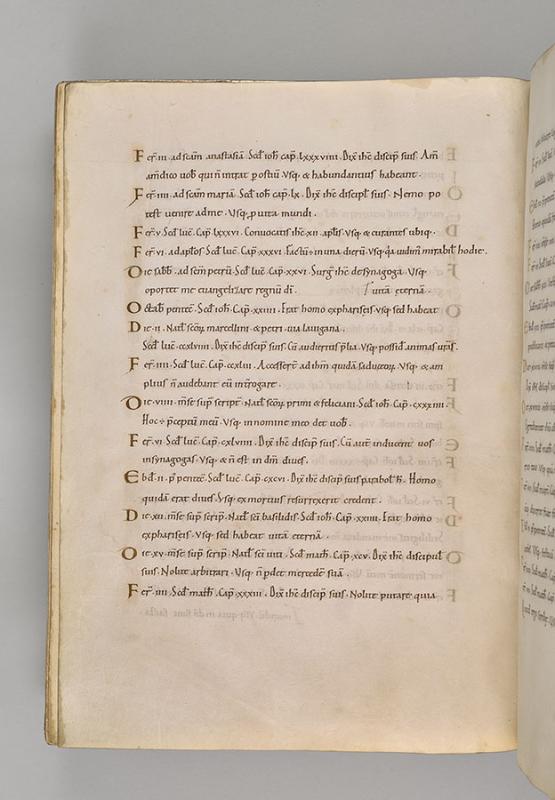 Fer̄ iii · ad scam̄ anastasiā · Scd̄ ioh̄ · cap̄ · lxxxviiii · Dix̄ ihc̄ discip̄ suis · Am̄
am̄ dico uob̄ qui n̄ intrat p ostiū · Usq; & habundantius habeant ·
Fer̄ iiii · ad scam̄ mariā · Scd̄ ioh̄ · cap̄ · lx · Dix̄ ihc̄ discipl̄ suis · Nemo po
test uenire ad me · Usq; p uita mundi ·
Fer̄ v · Scd̄ luc̄ · Cap̄ · lxxxvi · Conuocatis ihc̄ · xii · apl̄is · Usq; & curantes ubiq; ·
Fer̄ vi · ad apl̄os · Scd̄ luc̄ · Cap̄ · xxxvi · Factū ÷ in una dierū · Usq; q̄a uidim̄ mirabil̄ hodie ·
Die sabb̄ · ad scm̄ petrū · Scd̄ luc̄ · Cap̄ · xxvi · Surgn̄ ihc̄ de synagoga · Usq;
oportet me euangelizare regnū dī · uitā eternā ·
Octab̄ pentec̄ · Scd̄ ioh̄ · Cap̄ · xxiiii · Erat homo ex phariseis · Usq; sed habeat
Die · ii · Natl̄ scōꝝ marcellini & petri · uia lauigana ·
Scd̄ luc̄ · ccxlviii · Dix̄ ihc̄ discip̄ suis · Cū audieritis p̄lia · Usq; possid̄ animas ur̄as ·
Fer̄ iiii · Scd̄ luc̄ · Cap̄ · ccxliii · Accesserē ad ihm̄ quidā saduceoꝝ · Usq; & am
plius n̄ audebant eū int̄rogare ·
Die · viiii · m̄se sup̄ scripte · Natl̄ scōꝝ primi & feliciani · Scd̄ ioh̄ · Cap̄ · cxxxiiii ·
Hoc ÷ p̄ceptū meū · Usq; in nomine meo det uob̄ ·
Fer̄ vi · Scd̄ luc̄ · Cap̄ · cxlviiii · Dix̄ ihc̄ discip̄ suis · Cū aut̄ inducent uos
in synagogas · Usq; & n̄ est in dm̄ diues ·
Ebd̄ · ii · p̄ pentec̄ · Scd̄ luc̄ · Cap̄ · cxcvi · Dix̄ ihc̄ discip̄ suis parabol̄ h̄ · Homo
quidā erat diues · Usq; ex mortuis resurrexerit credent ·
Die · xii · m̄se sup̄ scrip̄ · Natl̄ scī basilidis · Scd̄ ioh̄ · Cap̄ · xxiiii · Erat homo
ex phariseis · Usq; sed habeat uitā eternā ·
Die · xv · m̄se sup̄ scrip̄ · Natl̄ scī uiti · Scd̄ math̄ · Cap̄ · xcv · Dix̄ ihc̄ discipul̄
suis · Nolite arbitrari · Usq; n̄ pdet mercedē suā ·
Fer̄ iiii · Scd̄ math̄ · Cap̄ · xxxiii · Dix̄ ihc̄ discip̄ suis · Nolite putare quia